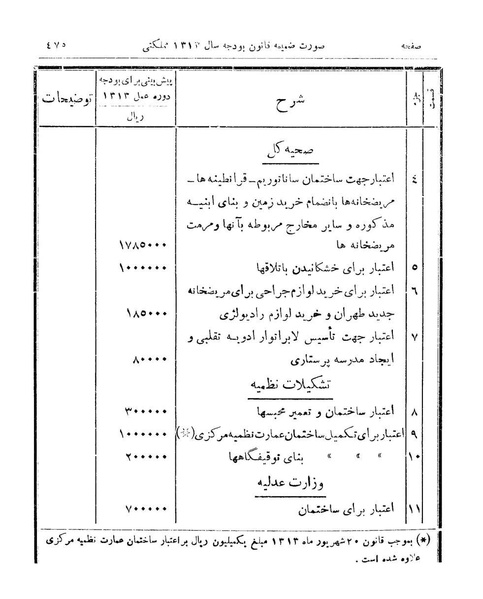 صفحه صورت ضمیمه قانون بودجه سال ۱۳۱۳ مملکتی ۴۷۵
قسمت جزء شرح پیش بینی برای بودجه دوره عمل ۱۳۱۳ توضیحات
ریال
صحیه کل
۴ اعتبار جهت ساختمان ساناتوریم - قرانطینه ها -
مریضخانه‌ها بانضمام خرید زمین و بنای ابنیه
مذکوره و سایر مخارج مربوطه بآنها و مرمت
مریضخانه ها ۱۷۸۵۰۰۰
۵ اعتبار برای خشکانیدن باتلاقها ۱۰۰۰۰۰۰
۶ اعتبار برای خرید لوازم جراحی برای مریضخانه
جدید طهران و خرید لوازم رادیولژی ۱۸۵۰۰۰
۷ اعتبار جهت تأسیس لابراتوار ادویه تقلبی و
ایجاد مدرسه پرستاری ۸۰۰۰۰
تشکیلات نظمیه
۸ اعتبار ساختمان و تعمیر محبسها ۳۰۰۰۰۰
۹ اعتبار برای تکمیل ساختمان عمارت نظمیه مرکزی (*) ۱۰۰۰۰۰۰
۱۰ » » » بنای توقیفگاهها ۲۰۰۰۰۰
وزارت عدلیه
۱۱ اعتبار برای ساختمان ۷۰۰۰۰۰
(*) بموجب قانون ۲۰ شهریور ماه ۱۳۱۳ مبلغ یکمیلیون ریال بر اعتبار ساختمان عمارت نظمیه مرکزی
علاوه شده است .